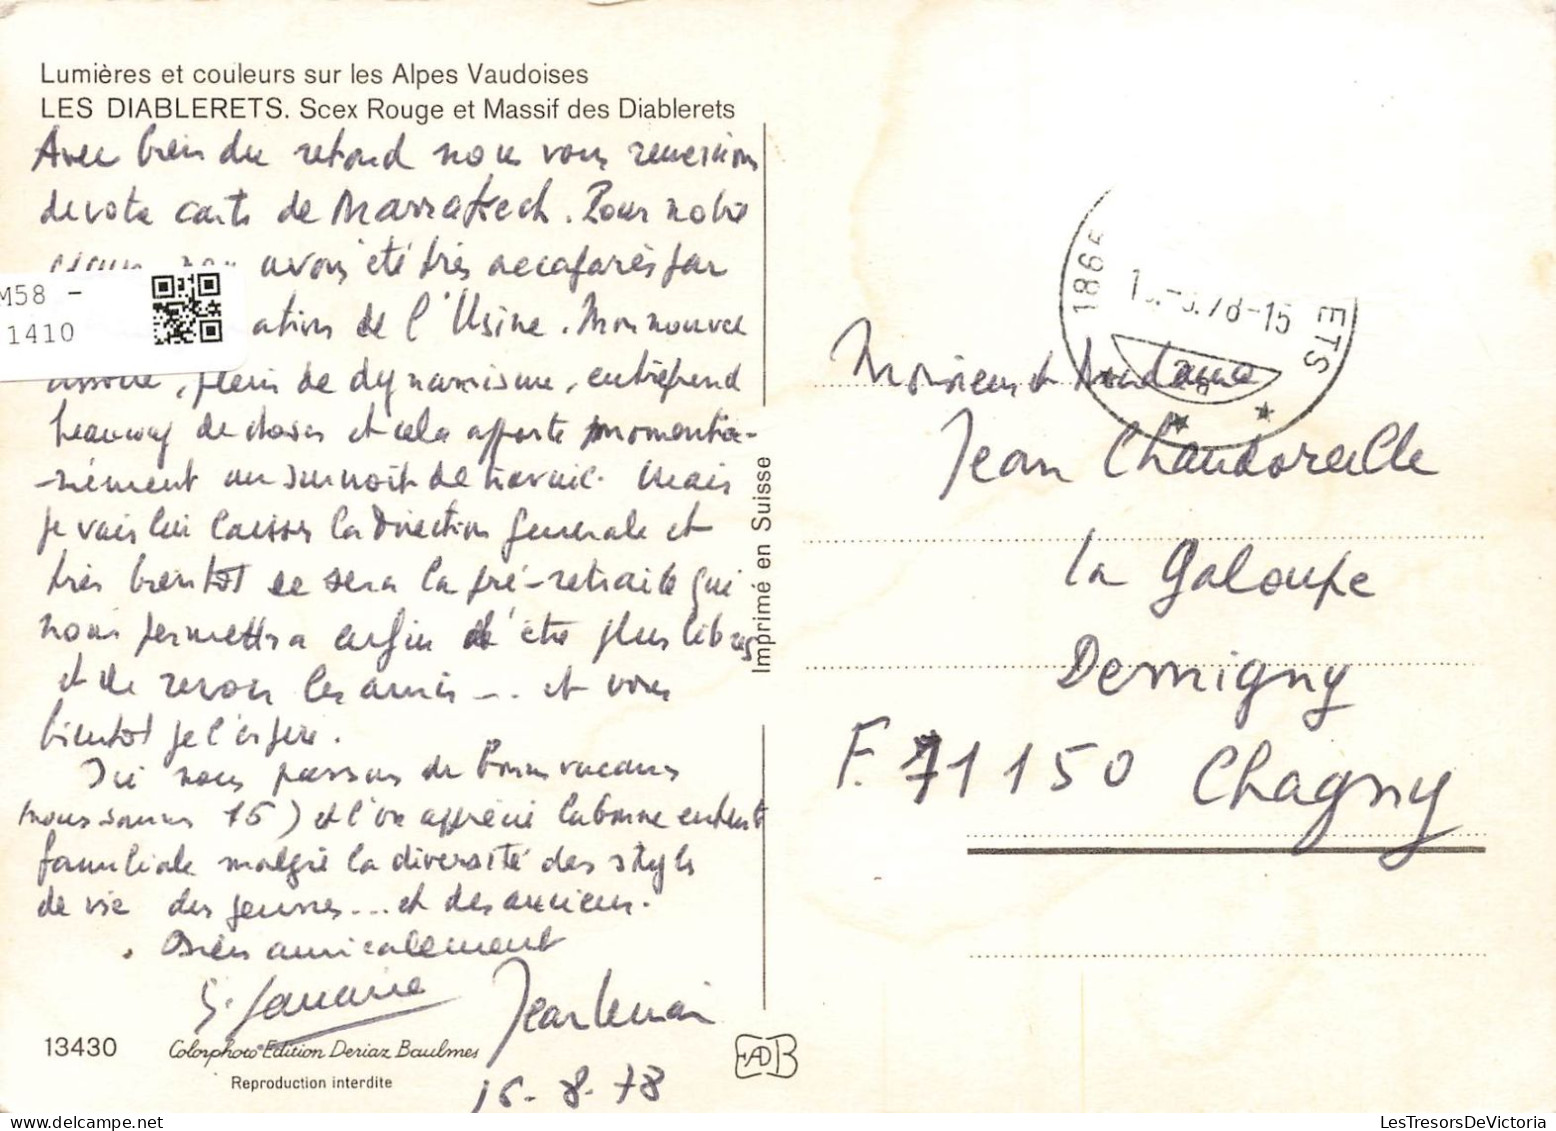 Lumières et couleurs sur les Alpes Vaudoises
LES DIABLERETS. Scex Rouge et Massif des Diablerets
Avec bien du retard nous vous remercions
de votre carte de Marrakech. Pour notre
avons été très accaparés par
M58 -
1410
ation de l'Usine. Mon nouvel
associé, plein de dynamisme, entreprend
beaucoup de choses et cela apporte momenta-
-nément un surcroit de travail. Mais
je vais lui laisser la Direction générale et
très bientôt ce sera la pré-retraite qui
nous permettra enfin d'être plus libres
et de revoir les amis... et vous
bientôt je l'espère.
Ici nous passons de bonnes vacances
nous sommes 15) et l'on apprécie la bonne entente
familiale malgré la diversité des styles
de vie des jeunes... et des anciens.
Bien amicalement
Jean
16-8-78
13430
Colorphoto Edition Deriaz Baulmes
Reproduction interdite
Imprimé en Suisse
EADB
186
78-15
ETS
Monsieur et Madame
Jean Chandoreille
la Galoupe
Demigny
F. 71150 Chagny
LesTresorsDeVictoria.com